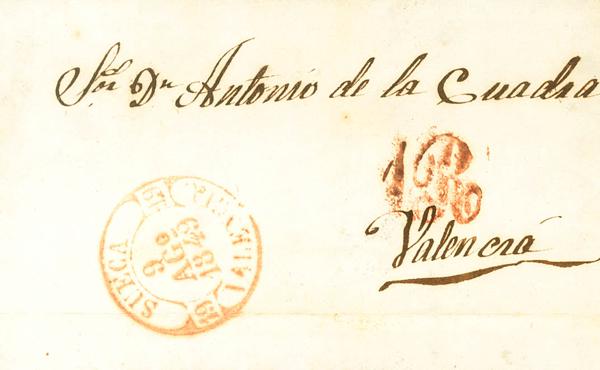 Sor Dn Antonio de la Cuadra
1 R
Valencia
SUECA
9
AGO
1849
VALENCIA
19
19